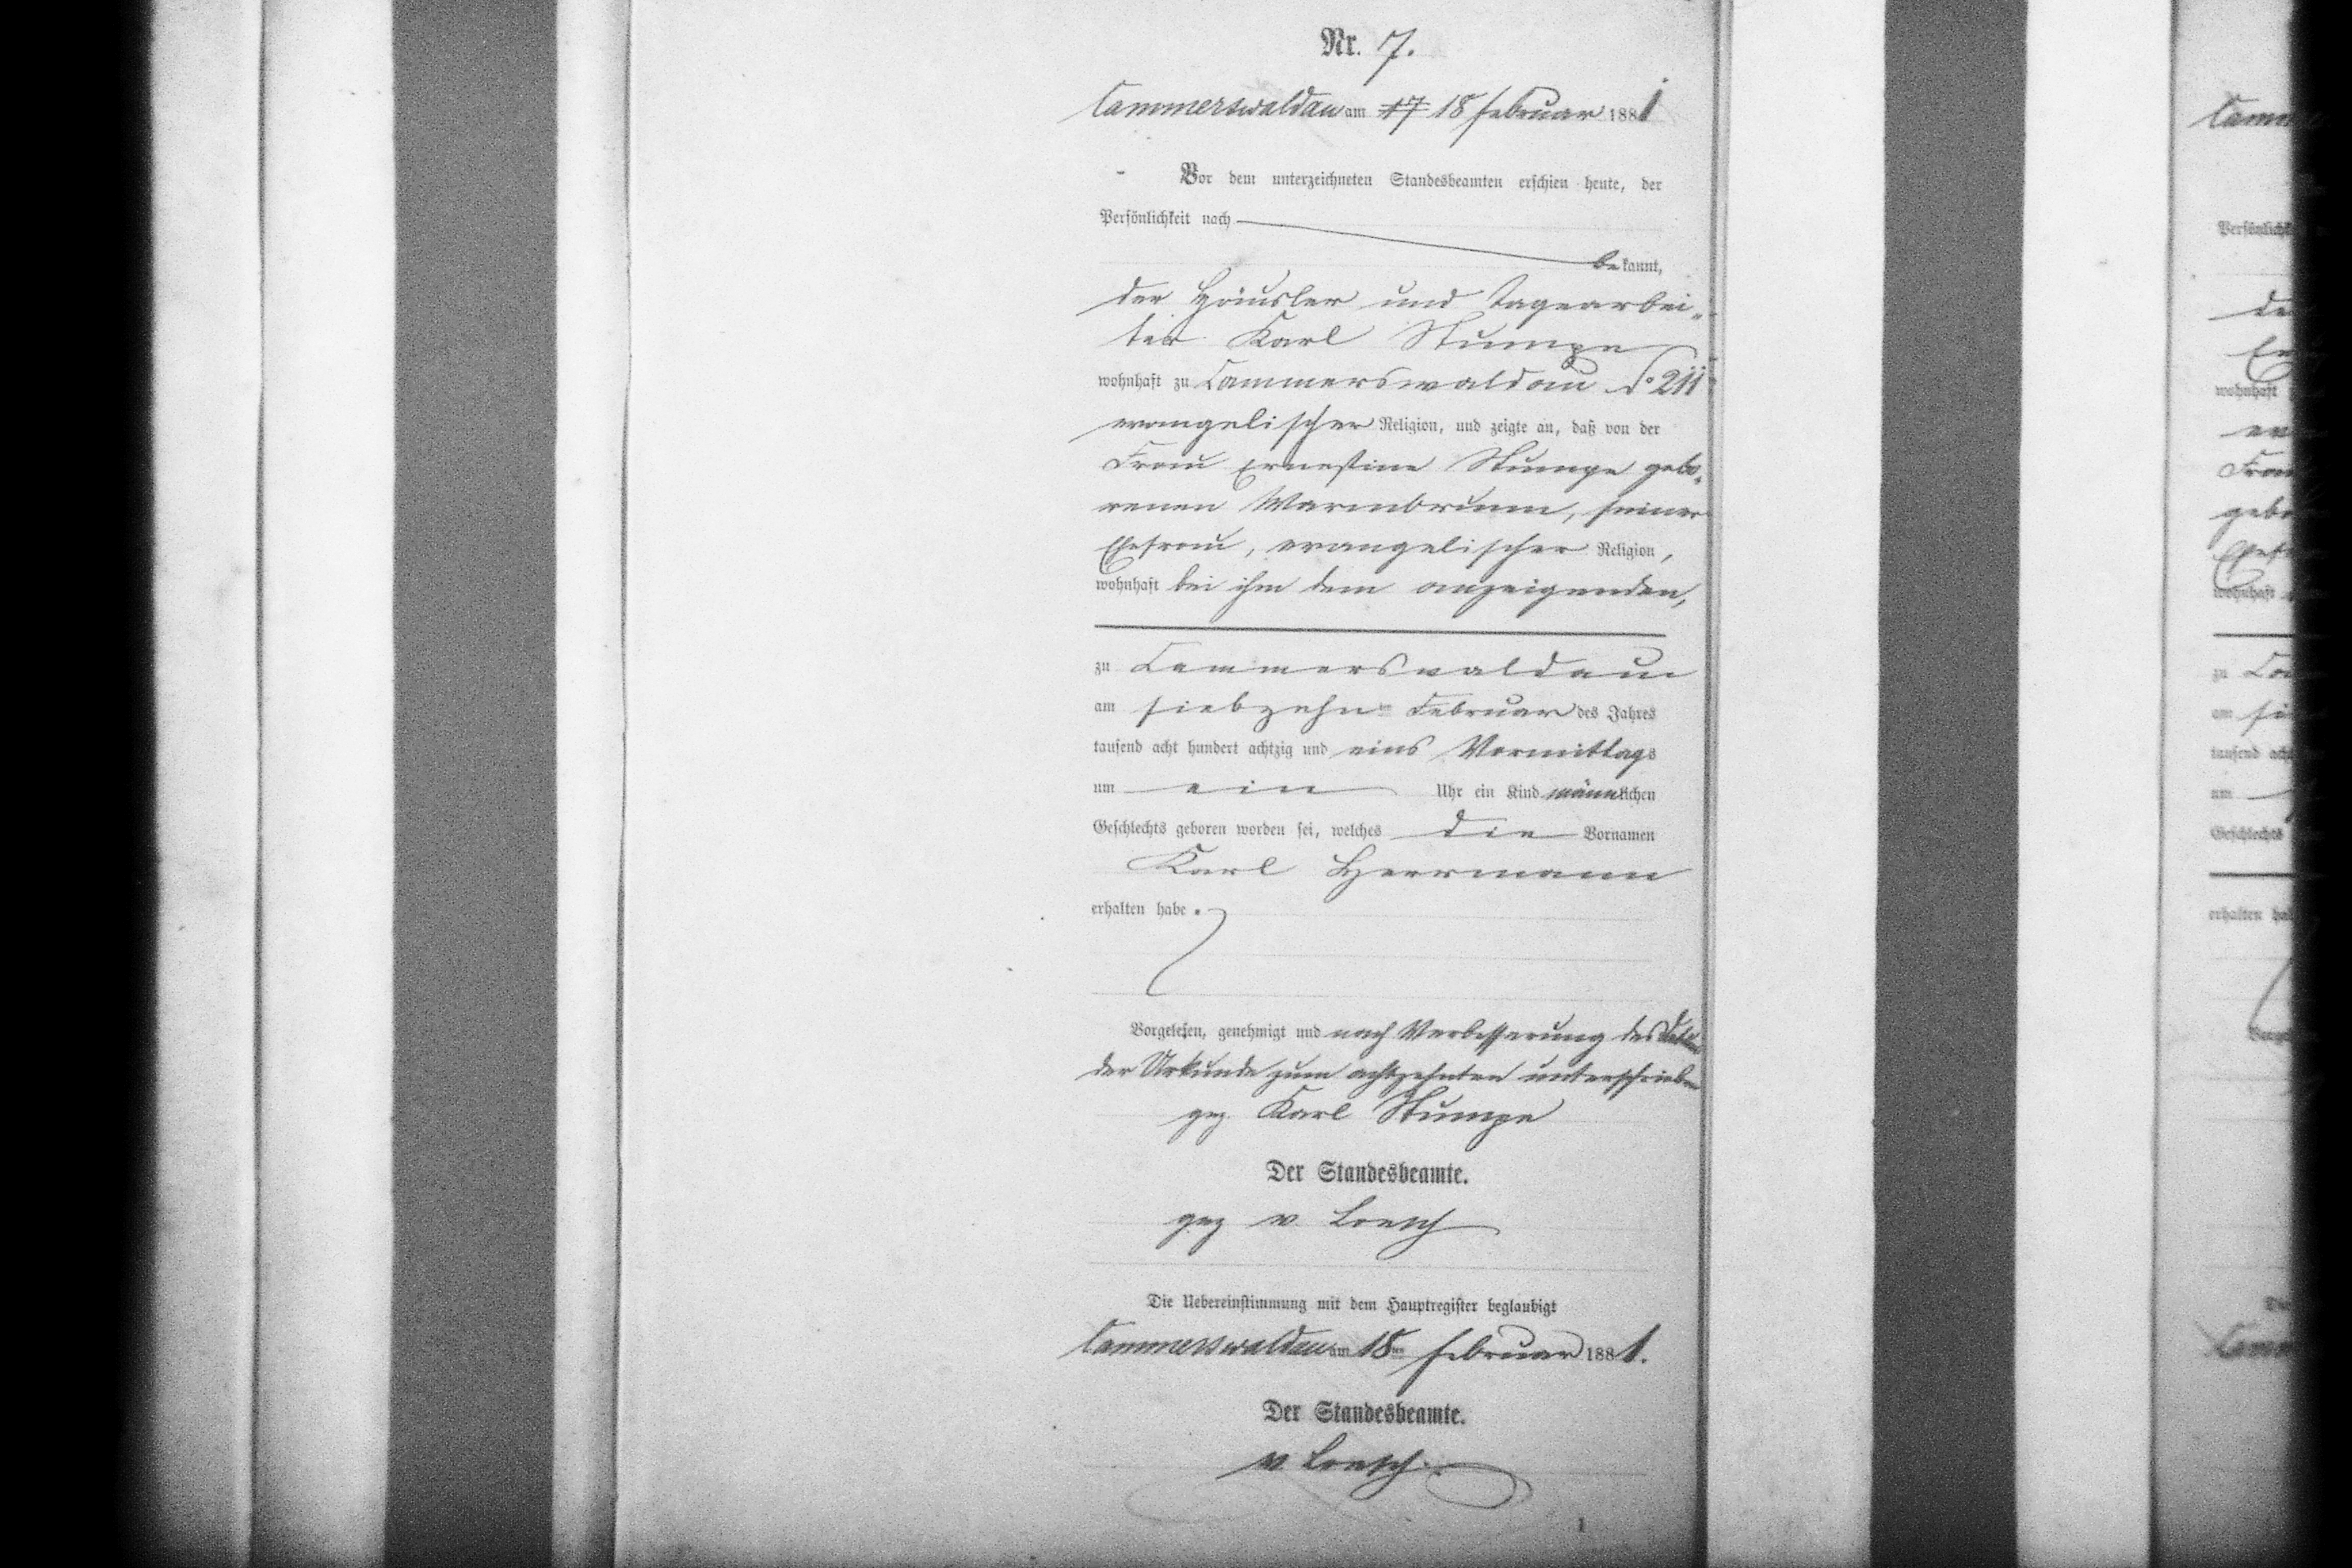 Nr. 7.
Cammerswaldau am 17 18 Februar 1881
Vor dem unterzeichneten Standesbeamten erschien heute, der
Persönlichkeit nach
bekannt,
der Häusler und Tagearbei-
ter Karl Stumpe
wohnhaft zu Cammerswaldau No 211
evangelischer Religion, und zeigte an, daß von der
Frau Ernestine Stumpe gebo-
renen Warmbrunn, seiner
Ehefrau, evangelischer Religion,
wohnhaft bei ihm dem anzeigenden,
zu Cammerswaldau
am siebzehnten Februar des Jahres
tausend acht hundert achtzig und eins Vormittags
um ein Uhr ein Kind männlichen
Geschlechts geboren worden sei, welches die Vornamen
Karl Herrmann
erhalten habe.
Vorgelesen, genehmigt und nach Verbesserung des
der Urkunde zum achtzehnten unterschrieben
gez Karl Stumpe
Der Standesbeamte.
gez v Loesch
Die Uebereinstimmung mit dem Hauptregister beglaubigt
Cammerswaldau am 18ten Februar 1881.
Der Standesbeamte.
v Loesch
1